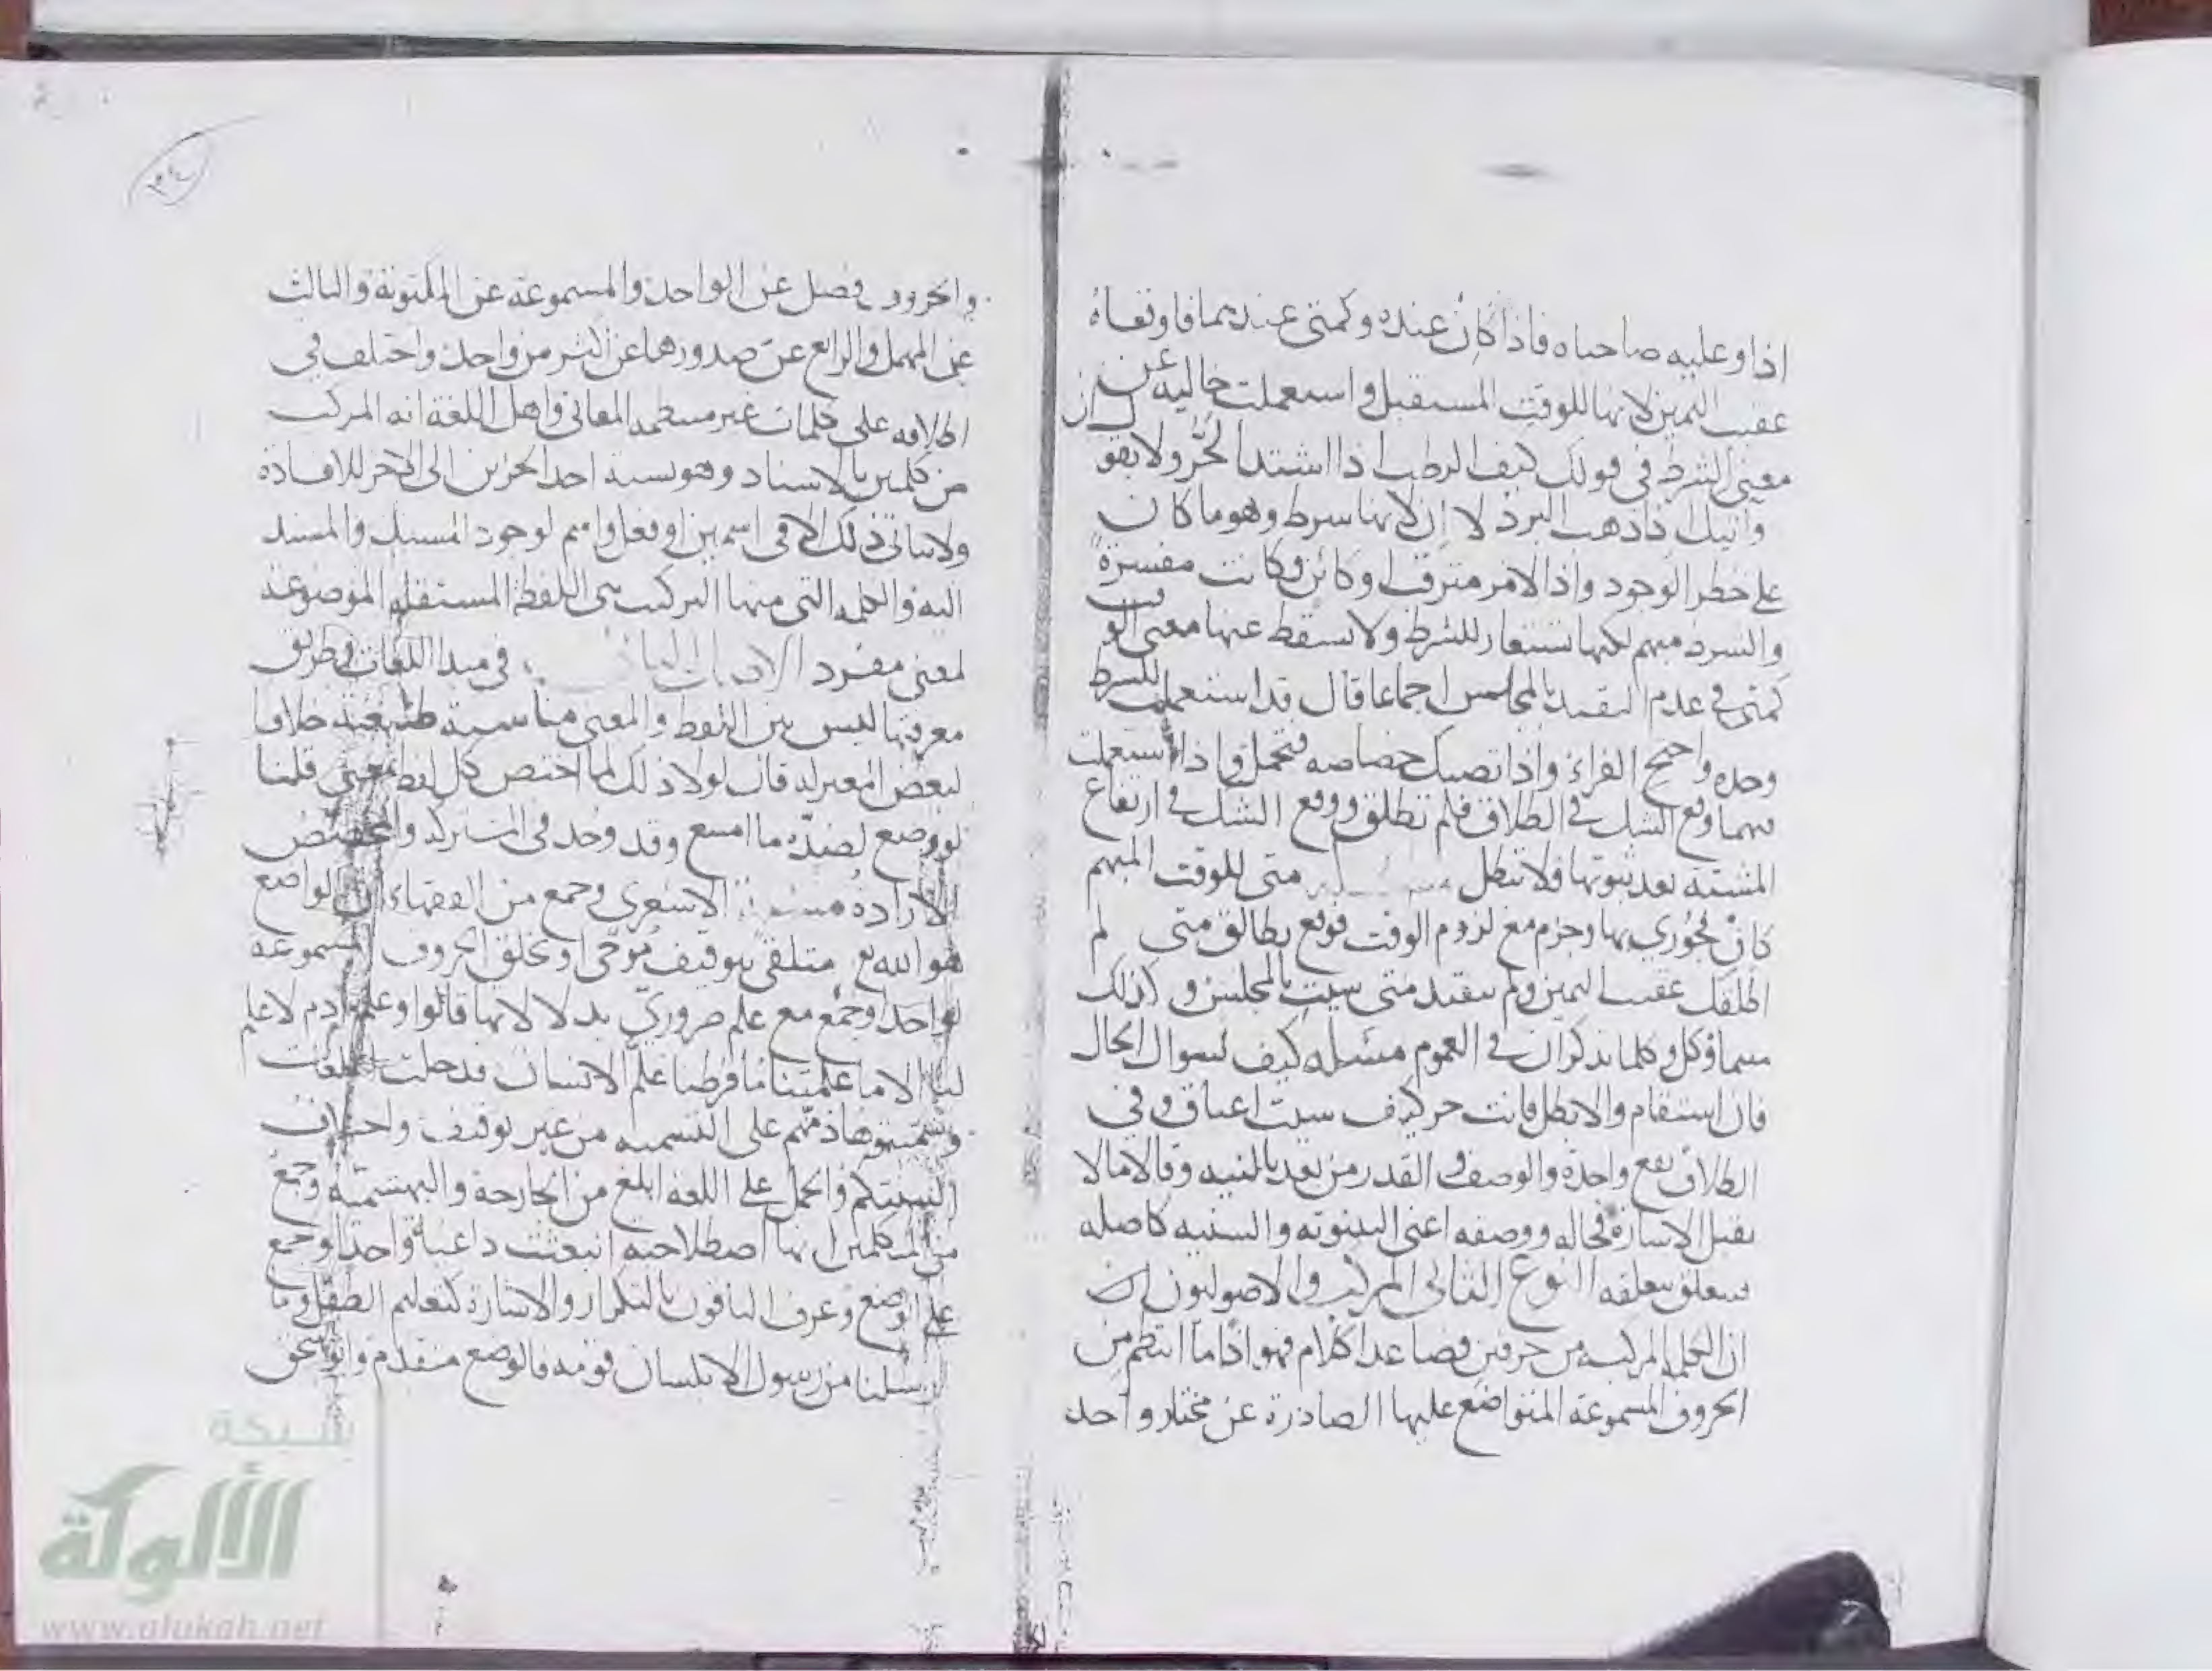 اذا وعليه صاحباه فاذا كان عنده وكمتى عندهما فاوقعاه
عقيب اليمين لانها للوقت المستقبل واستعملت خاليه عن
معنى الشرط في قولك كيف الرطب اذا اشتد الحر ولا يقو ل ان
واتيك اذا ذهب البرد لا ان لانها شرط وهو ما كان
على خطر الوجود واذا لامر مترقب او كائن وكانت مفسرة
والشرط مبهم لكنها تستعار للشرط ولا يسقط عنها معنى الو قت
كمتى في عدم التقييد بالمجلس اجماعا قال قد استعملت للشرط
وحده واحتج الفراء واذا تصبك خصاصه فتحمل واذا استعملت
فيهما وقع الشك في الطلاق فلم تطلق ووقع الشك في ارتفاع
المشيئه بعد ثبوتها فلا تبطل متى للوقت المبهم
كان فجوزي بها وجزم مع لزوم الوقت فوقع بطالق متى لم
اطلقك عقيب اليمين ولم يتقيد متى شيت بالمجلس وكذلك
مهما وكل وكلما يذكران في العموم مسئله كيف لسوال الحال
فان استقام والا بطل فانت حر كيف شيت اعتاق وفي
الطلاق يقع واحدة والوصف والقدر من بعد بالمشيه وقالا ما لا
يقبل الاشارة فحاله ووصفه اعني البينونه والسنيه كاصله
فيتعلق بتعلقه النوع الثاني المركب والاصوليون ان
ان الكلمه المركبه من حرفين فصاعدا كلام فهو اذا ما انتظم من
الحروف المسموعة المتواضع عليها الصادرة عن مختار واحد
والحروف فصل عن الواحد والمسموعة عن المكتوبة والثالث
عن المهمل والرابع عن صدورها عن اكثر من واحد واختلف في
اطلاقه على كلمات غير منتظمه المعاني واهل اللغة انه المركب
من كلمتين بالاسناد وهو نسبة احد الجزين الى الاخر للافادة
ولا يتاتى ذلك الا في اسمين او فعل واسم لوجود المسند والمسند
اليه والكلمه التي منها التركيب هي اللفظة المستقله الموضوعة
لمعنى مفرد في مبدا اللغات وطريق
معرفتها ليس بين اللفظ والمعنى مناسبة طبيعية خلافا
لبعض المعتزله قال لولا ذلك لما اختص كل لفظ بمعنى قلنا
لو وضع لضده ما امتنع وقد وجد في المشترك والمخصص
الارادة الاشعري وجمع من الفقهاء ان الواضع
هو الله تع متلقى بتوقيف موحى او بخلق الحروف المسموعة
لواحد او جمع مع علم ضروري بدلالاتها قالوا وعلم ادم لا علم
لنا الا ما علمتنا ما فرطنا علم الانسان فدخلت اللغات
وسميتموها ذمهم على التسميه من غير توقيف واختلاف
السنتكم والحمل على اللغه ابلغ من الجارحة والبهشميه وجمع
من المتكلمين انها اصطلاحيه انبعثت داعية واحد او جمع
على الوضع وعرف الباقون بالتكرار والاشارة كتعليم الطفل وما
ارسلنا من رسول الا بلسان قومه فالوضع متقدم
شبكة
الألوكة
www.alukah.net